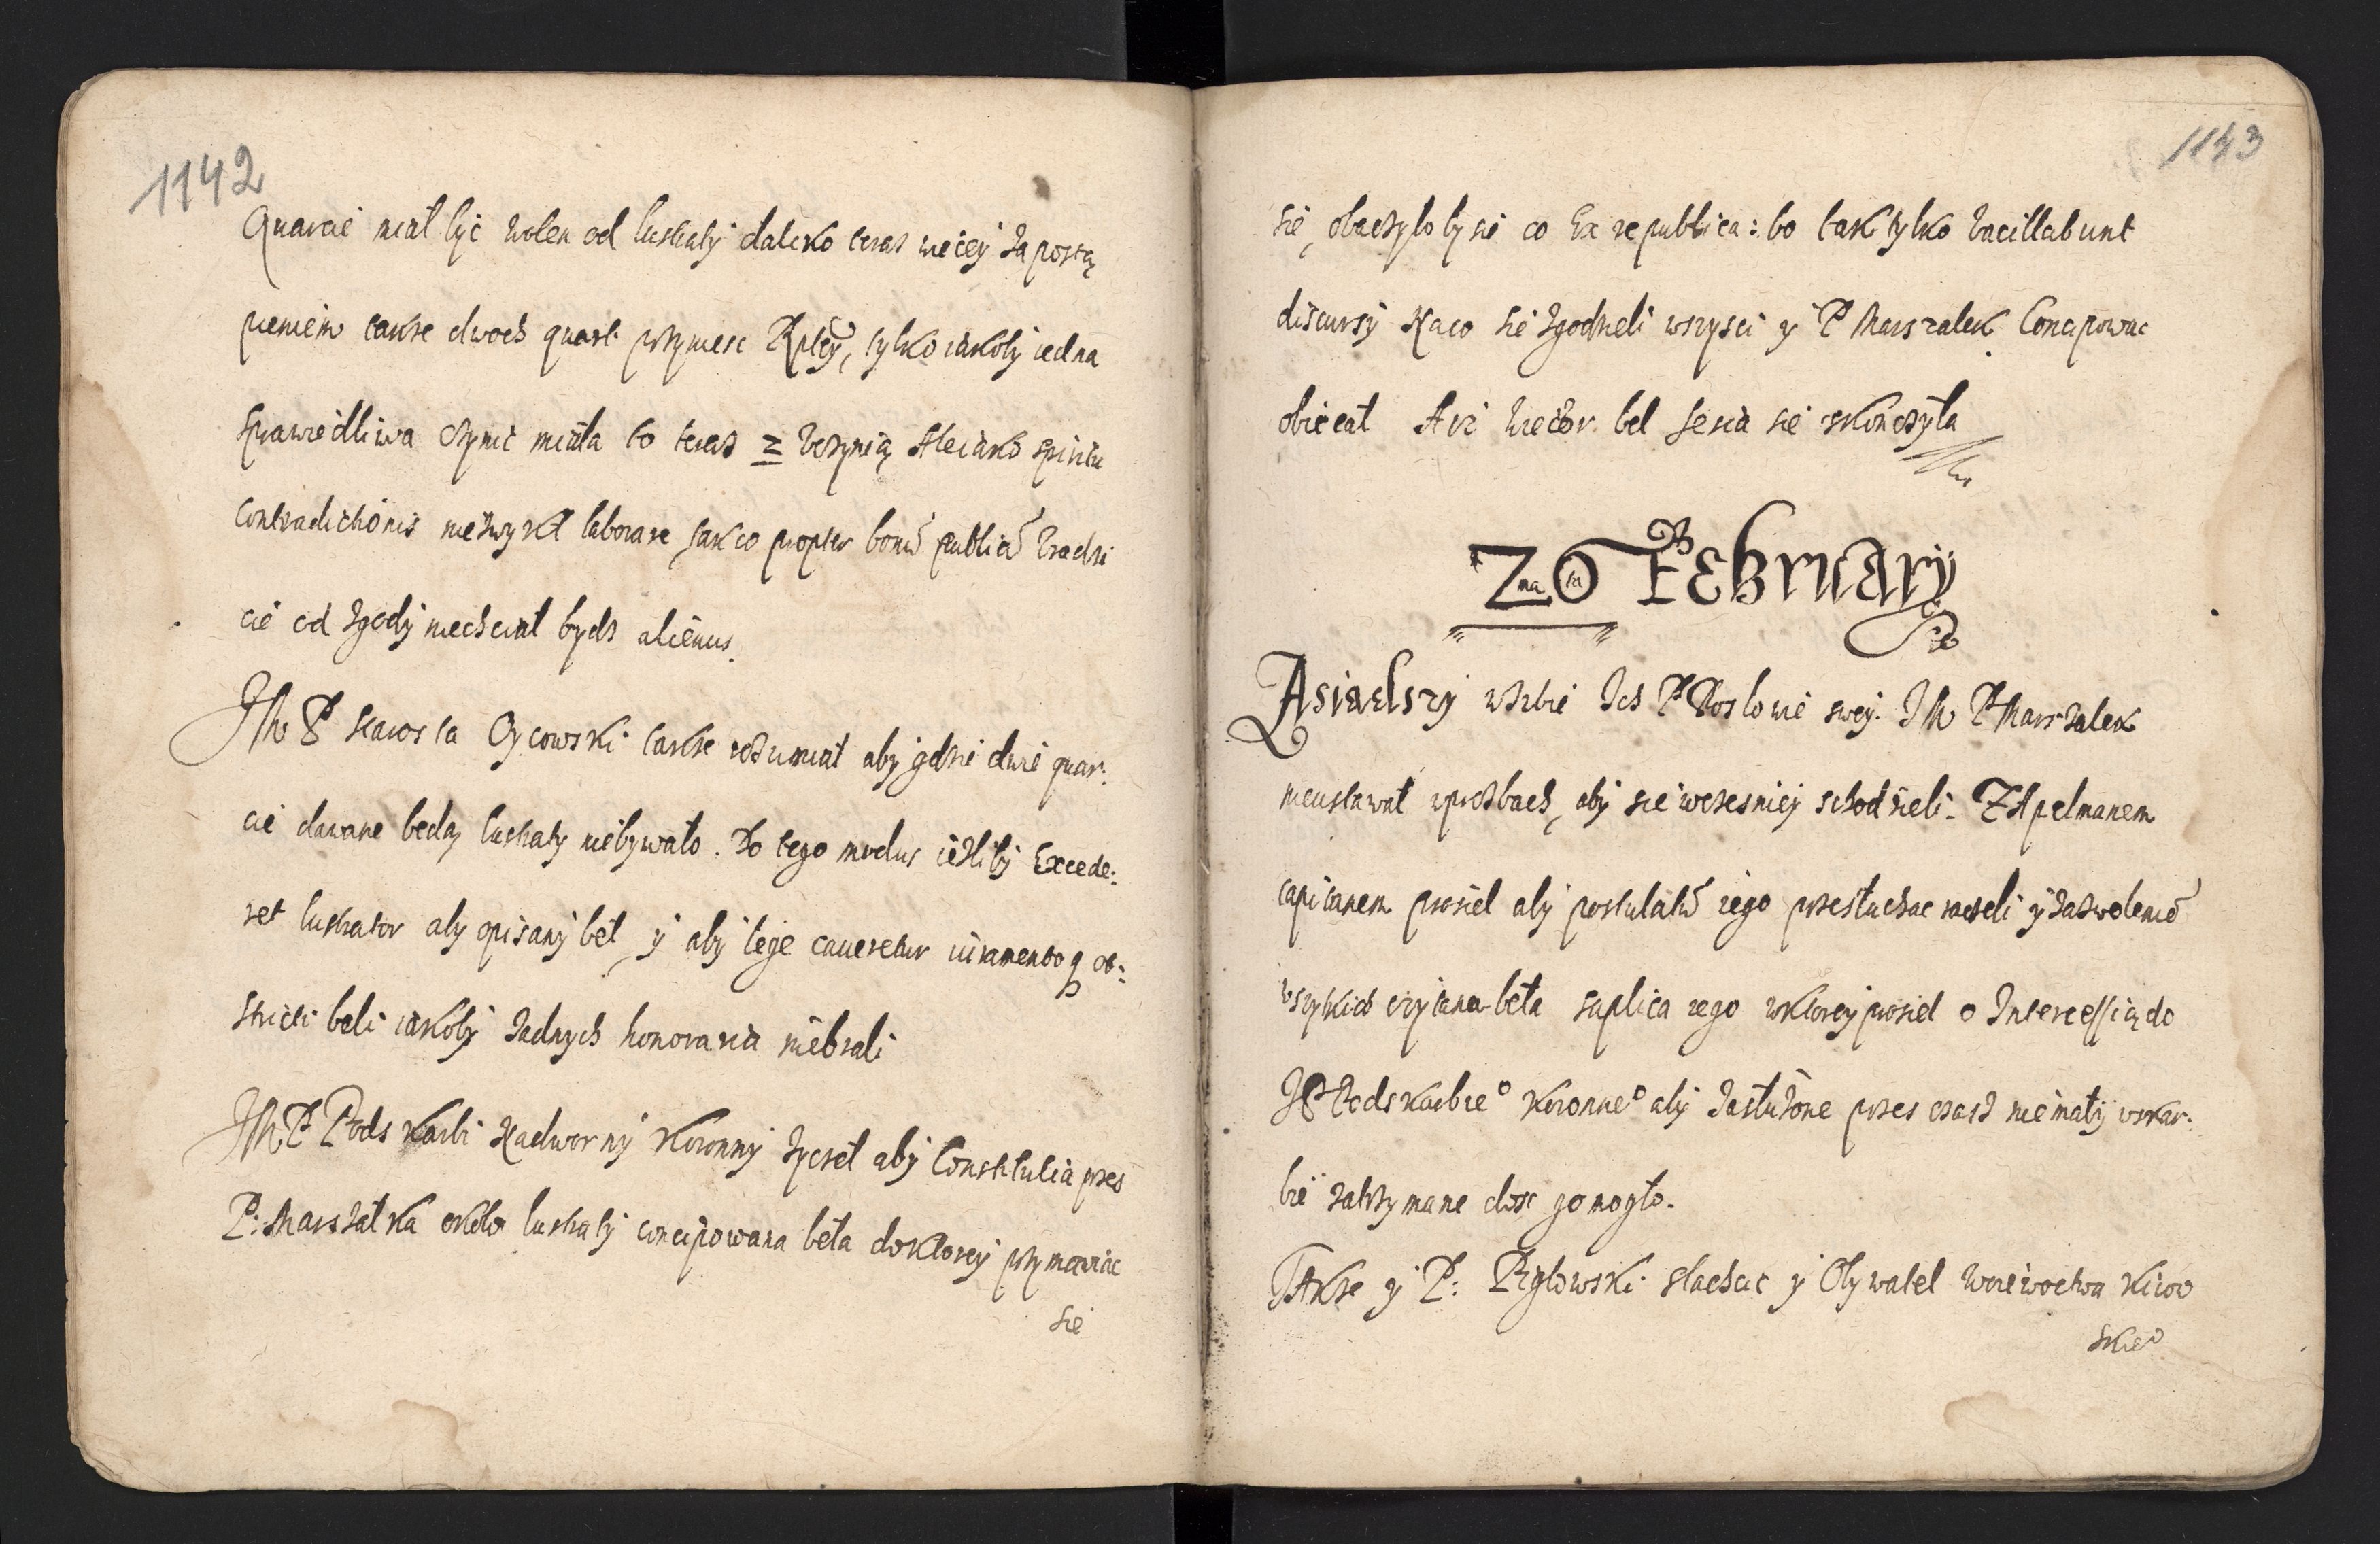 1142
Quarcie miał byc wolen od lustraty daleko teras wiecey za postą
pieniem takze dwoch quart przyniesc Rptey, tylko iakoby iedna
sprawiedliwa czynic miała to teras 2 uczynią Ale iako spiritu
contradictionis niezwykł laborare jak co propter bonū publicū bradzi
cie od zgody niechciał bydz alienus.
JM P Starosta Oycowski takze rozumiał aby gdzie dwie quar:
cie dawane beda lustraty niebywało. Do tego modus iezliby Excede:
ret lustrator aby opisany beł, y aby lege caueretur iuramentoq ob:
stricti beli iakoby zadnych honoraria niebrali
JM P Pods karbi Nadworny Koronny zyczeł aby Constitutia przes
P: Marszałka około lustraty concipowana beła doktorey przymawiac
sie
1143
sie, obaczyło by sie co Ex republica: bo tak tylko vacillabunt
discursy Naco sie zgodzieli wszysci y P Marszalek Concipowac
obiecał A iz wieczor beł Sesia sie skonczyła
20 February
ZAsiadszy w Izbie Ich P Posłowie swey. JM P Marszalek
nieustawał w prozbach, aby sie wczesniey schodzieli. Z Apelmanem
capitanem prosieł aby postulatū iego przesłuchac raczeli y zazwoleniē
wszytkich czytana beła suplica iego w ktorey prosieł o Intercessią do
JP Podskarbie° Koronne° aby zasłuzone przes czasz niemały w skar:
bie zatrzymane dosc go mogło.
TAkze y P: Pigłowski slachcic y Obywatel Woiewoctwa Kiiow
skie°